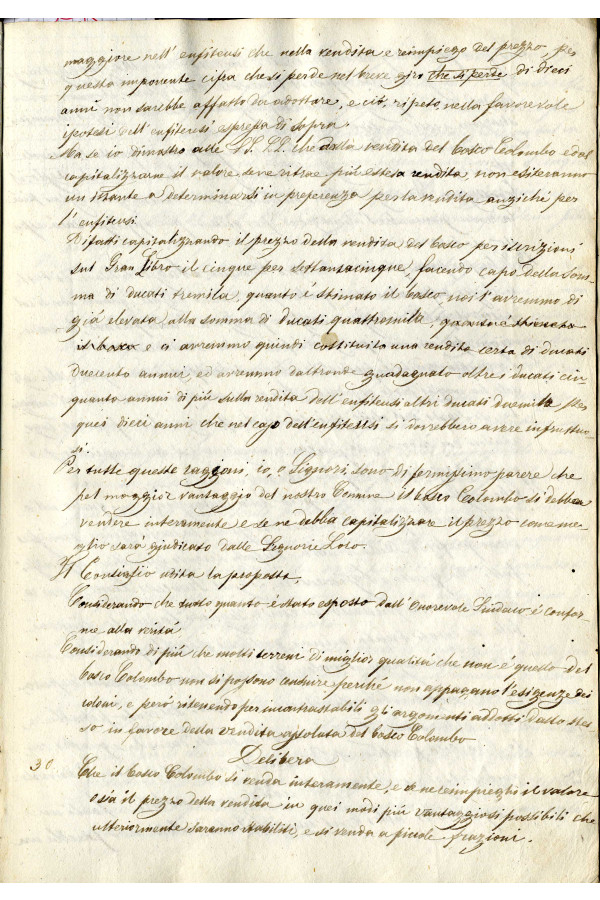 maggiore nell'enfiteusi che nella vendita e reimpiego del prezzo, per
questa imponente cifra che si perde nel breve giro che si perde di dieci
anni non sarebbe affatto da adottare, e ciò, ripeto, nella favorevole
ipotesi dell'enfiteusi espressa di sopra.
Ma se io dimostro alle SS. LL. che dalla vendita del bosco Colombo e dal
capitalizzarne il valore, se ne ritrae più estesa rendita, non esiteranno
un istante a determinarsi in preferenza per la vendita anziché per
l'enfiteusi.
Difatti capitalizzando il prezzo della vendita del bosco per iscrizioni
sul Gran Libro il cinque per settantacinque, facendo capo della som-
ma di ducati tremila, quanto è stimato il bosco, noi l'avremmo di
già elevata alla somma di ducati quattromila, quanto è stimato
il bosco e ci avremmo quindi costituita una rendita certa di ducati
duecento annui, ed avremmo daltronde guadagnato oltre i ducati cin
quanta annui di più sulla rendita dell'enfiteusi altri ducati duemila per
quei dieci anni che nel capo dell'enfiteusi si dovrebbero avere infruttuo-
si.
Per tutte queste raggioni, io, o Signori, sono di fermissimo parere che
pel maggior vantaggio del nostro Comune il bosco Colombo si debba
vendere interamente e se ne debba capitalizzare il prezzo come me-
glio sarà giudicato dalle Signorie Loro.
Il Consiglio udita la proposta,
Considerando che tutto quanto è stato esposto dall'Onorevole Sindaco è confor-
me alla verità
Considerando di più che molti terreni di miglior qualità che non è questo del
bosco Colombo non si possono censire perché non appagano l'esigenze dei
coloni, e però ritenendo per incontrastabili gli argomenti addotti dallo stes-
so in favore della vendita assoluta del bosco Colombo
Delibera
30 Che il bosco Colombo si venda interamente, e se ne reimpieghi il valore
ossia il prezzo della vendita in quei modi più vantaggiosi possibili che
ulteriormente saranno stabiliti, e si venda a piccole frazioni.